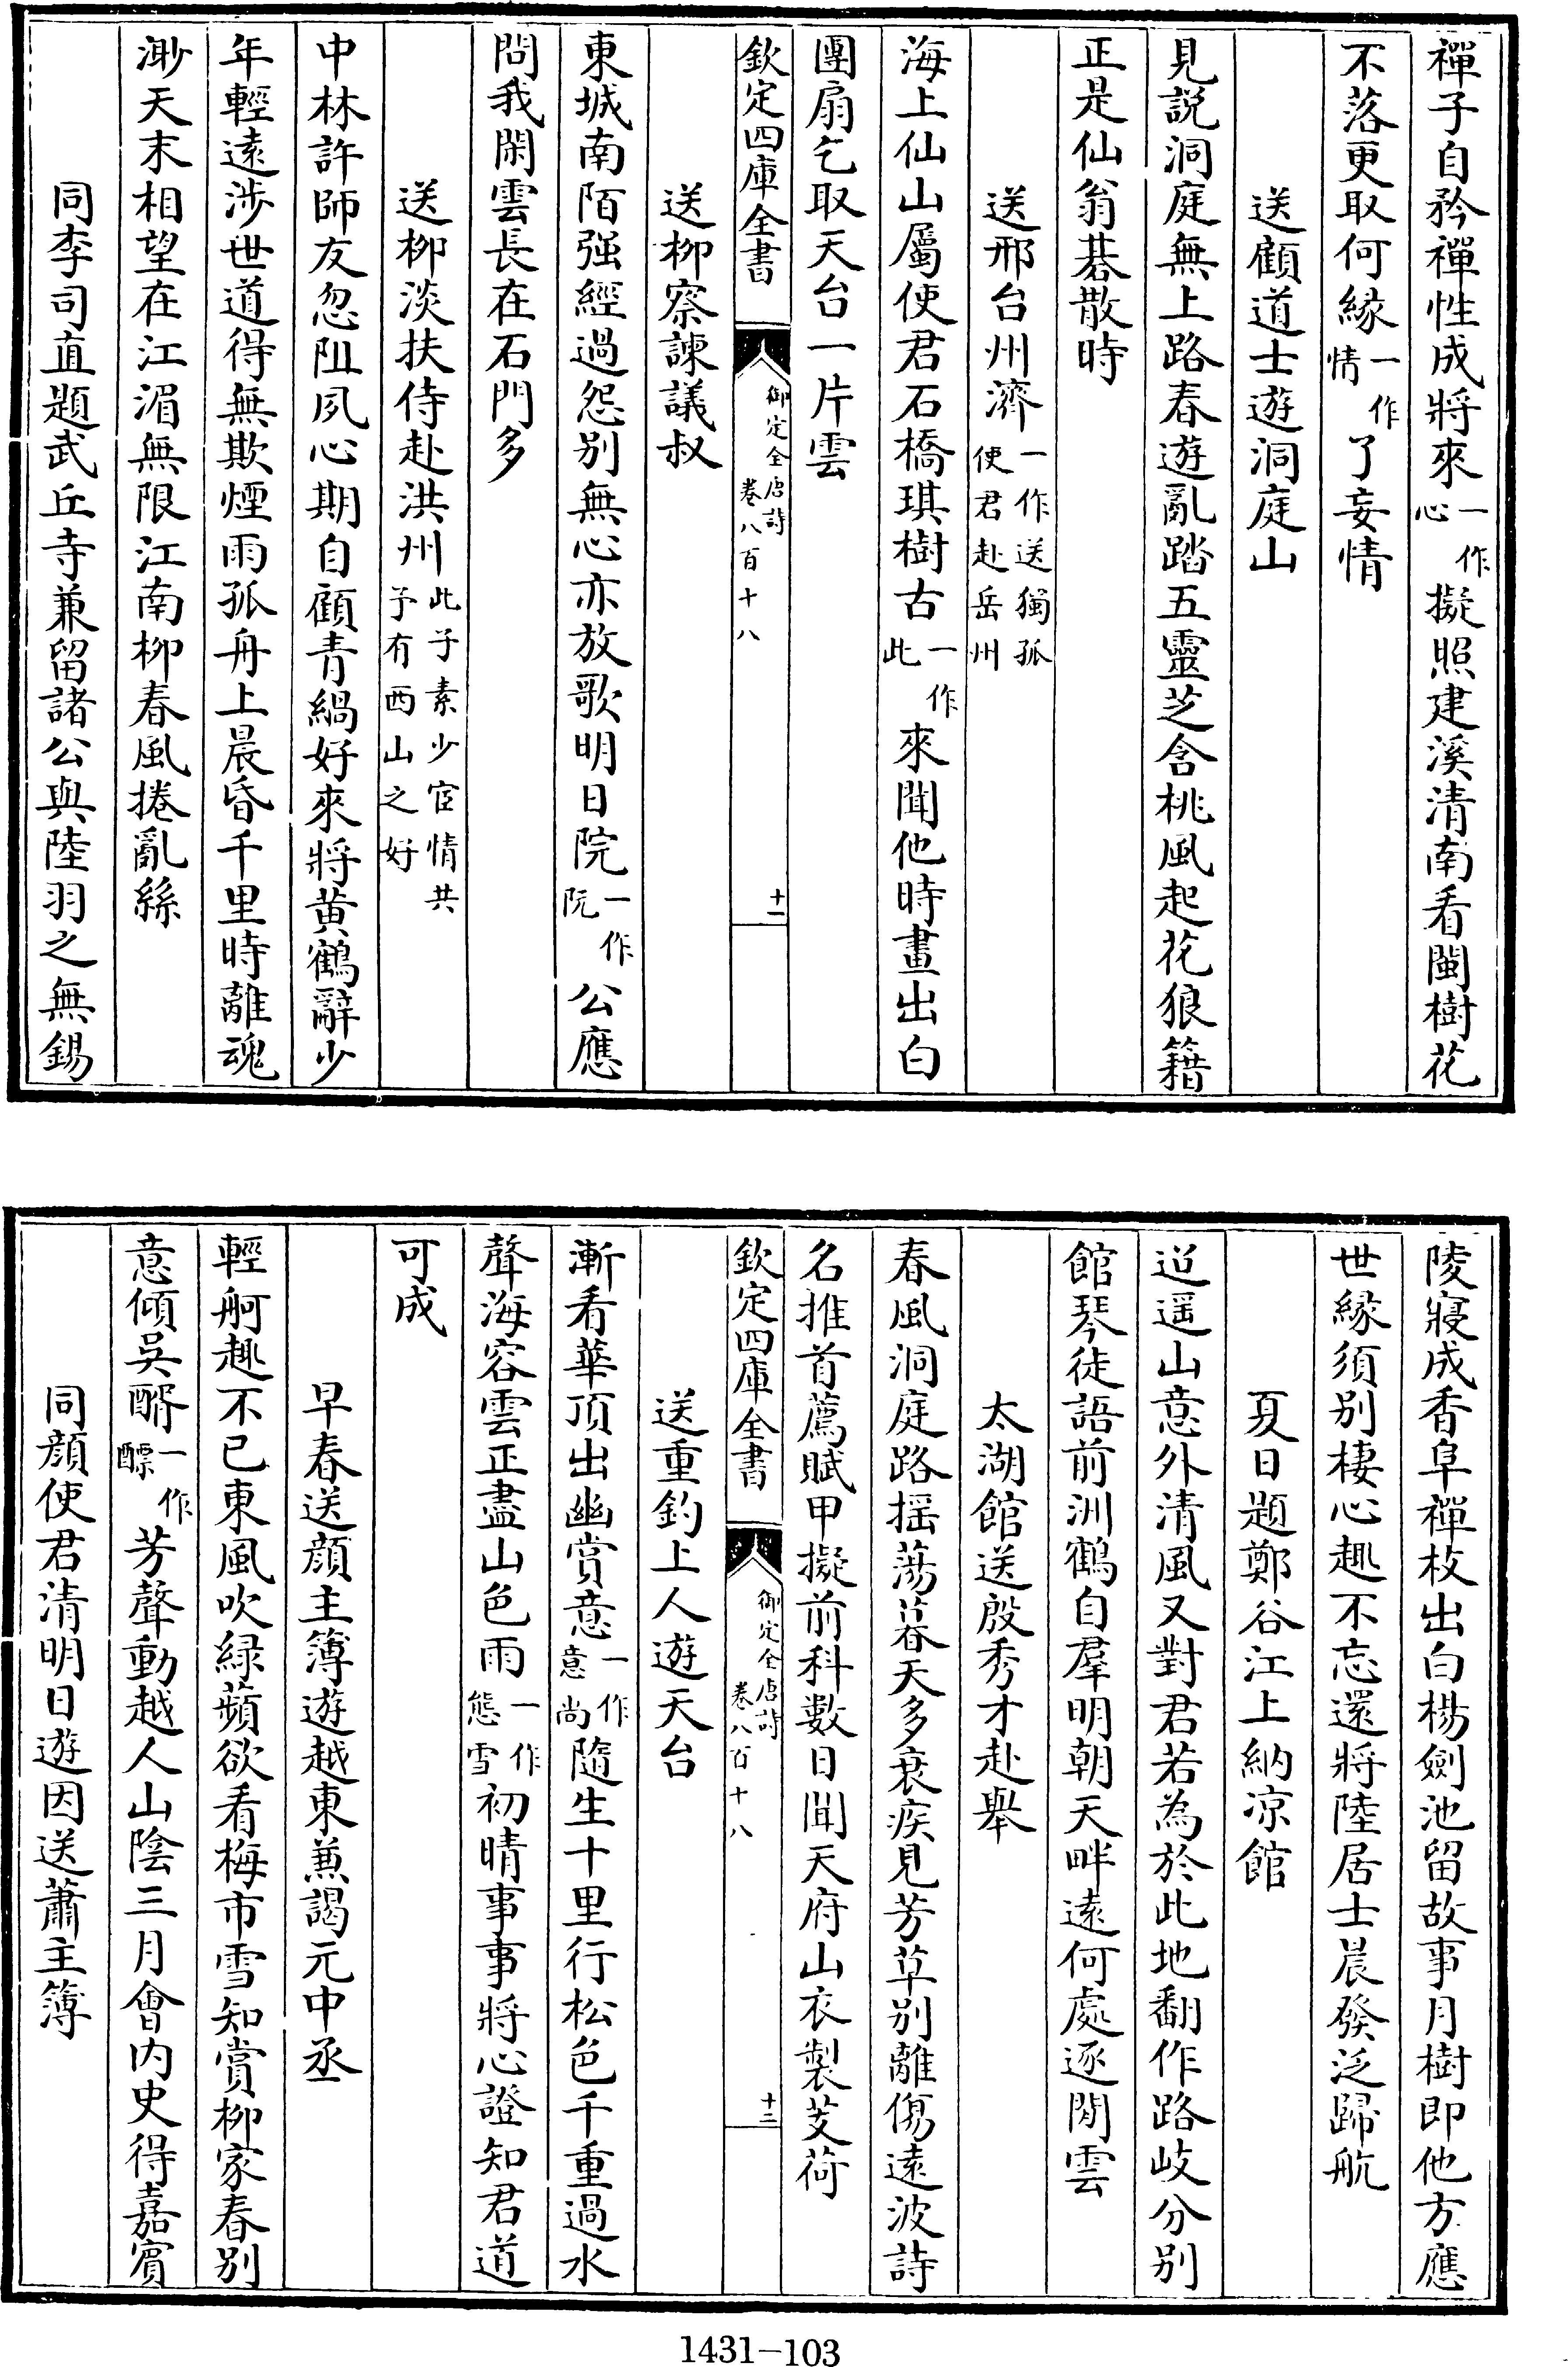 禪子自矜禪性成將來一作心擬照建溪清南看閩樹花
不落更取何縁一作情了妄情
送顧道士遊洞庭山
見説洞庭無上路春遊亂踏五靈芝含桃風起花狼籍
正是仙翁棊散時
送邢台州濟一作送獨孤使君赴岳州
海上仙山屬使君石橋琪樹古一作此來聞他時畫出白
團扇乞取天台一片雲
欽定四庫全書 御定全唐詩 卷八百十八 十一
送柳察諫議叔
東城南陌强經過怨别無心亦放歌明日院一作阮公應
問我閑雲長在石門多
送柳淡扶侍赴洪州此子素少宦情共予有西山之好
中林許師友忽阻夙心期自顧青緺好來將黄鶴辭少
年輕遠涉世道得無欺煙雨孤舟上晨昏千里時離魂
渺天末相望在江湄無限江南柳春風捲亂絲
同李司直題武丘寺兼留諸公與陸羽之無錫
陵寢成香阜禪枝出白楊劍池留故事月樹即他方應
世縁須别棲心趣不忘還將陸居士晨發泛歸航
夏日題鄭谷江上納凉館
迢遥山意外清風又對君若為於此地翻作路岐分别
館琴徒語前洲鶴自羣明朝天畔遠何處逐閒雲
太湖館送殷秀才赴舉
春風洞庭路揺蕩暮天多衰疾見芳草别離傷遠波詩
名推首薦賦甲擬前科數日聞天府山衣製芰荷
欽定四庫全書 御定全唐詩 卷八百十八 十二
送重鈞上人遊天台
漸看華頂出幽賞意一作意尚隨生十里行松色千重過水
聲海容雲正盡山色雨一作態雪初晴事事將心證知君道
可成
早春送顔主簿遊越東兼謁元中丞
輕舸趣不已東風吹緑蘋欲看梅市雪知賞柳家春别
意傾吳醑一作醥芳聲動越人山陰三月會内史得嘉賓
同顔使君清明日遊因送蕭主簿
1431-103